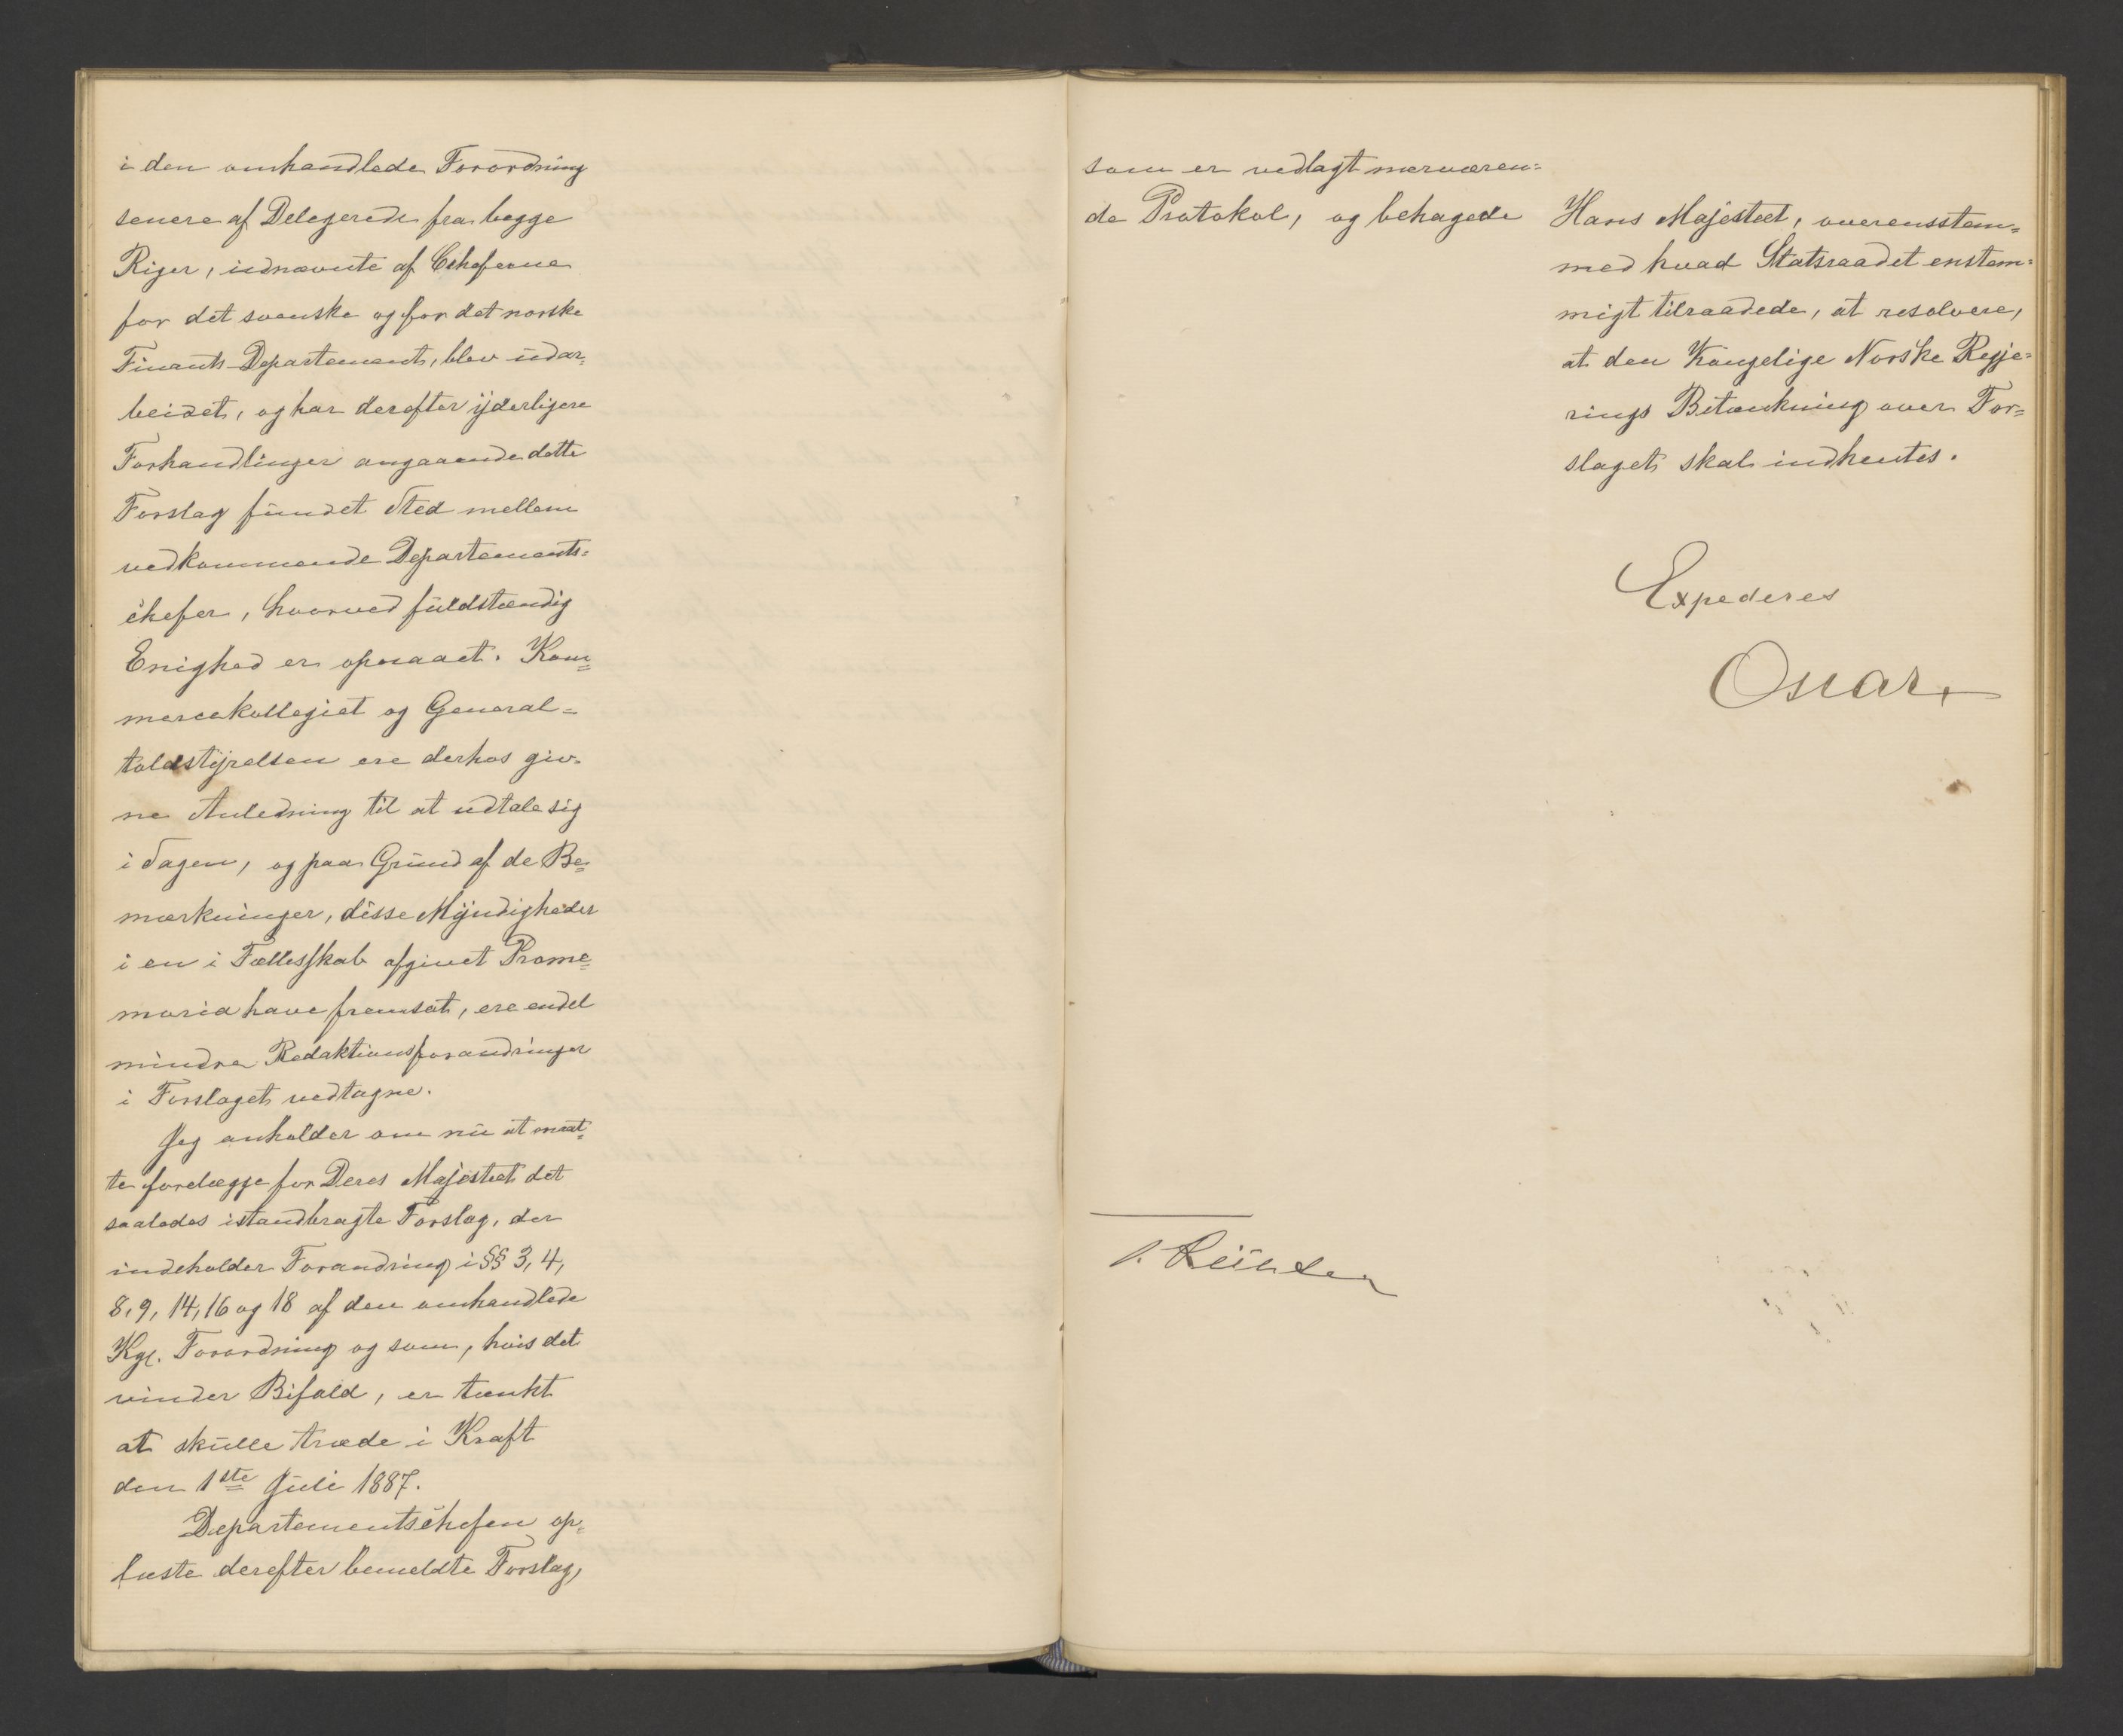 i den omhandlede Forordning
senere af Delegerede fra begge
Riger, udnævnte af Cheferne
for det svenske og for det norske
Finants-Departement, blev udar-
beidet, og har derefter yderligere
Forhandlinger angaaende dette
Forslag fundet Sted mellem
vedkommende Departements-
chefer, hvorved fuldstændig
Enighed er opnaaet. Kom-
mercekollegiet og General-
toldstyrelsen ere derhos giv-
ne Anledning til at udtale sig
i Sagen, og paa Grund af de Be-
mærkninger, disse Myndigheder
i en i Fællesskab afgivet Prome-
moria have fremsat, ere endel
mindre Redaktionsforandringer
i Forslaget vedtagne.
Jeg anholder om nu at maat-
te forelægge for Deres Majestæt det
saaledes istandbragte Forslag, der
indeholder Forandring i §§ 3, 4,
8, 9, 14, 16 og 18 af den omhandlede
Kgl. Forordning og som, hvis det
vinder Bifald, er tænkt
at skulle træde i Kraft
den 1ste Juli 1887.
Departementschefen op-
læste derefter bemeldte Forslag,
som er vedlagt nærværen-
de Protokol, og behagede
Hans Majestæt, overensstem-
med hvad Statsraadet enstem-
migt tilraadede, at resolvere,
at den Kongelige Norske Regje-
rings Betænkning over For-
slaget skal indhentes.
Expederes
Oscar.